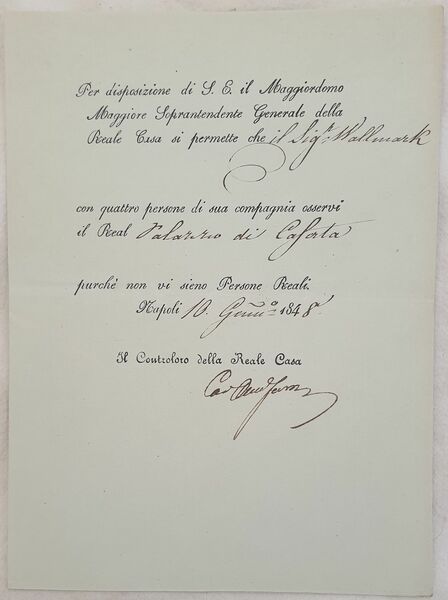 Per disposizione di S. E. il Maggiordomo
Maggiore Soprantendente Generale della
Reale Casa si permette che il Sigr. Wallmark
con quattro persone di sua compagnia osservi
il Real Palazzo di Caserta
purchè non vi sieno Persone Reali.
Napoli 10. Genn.o 1848.
Il Controloro della Reale Casa